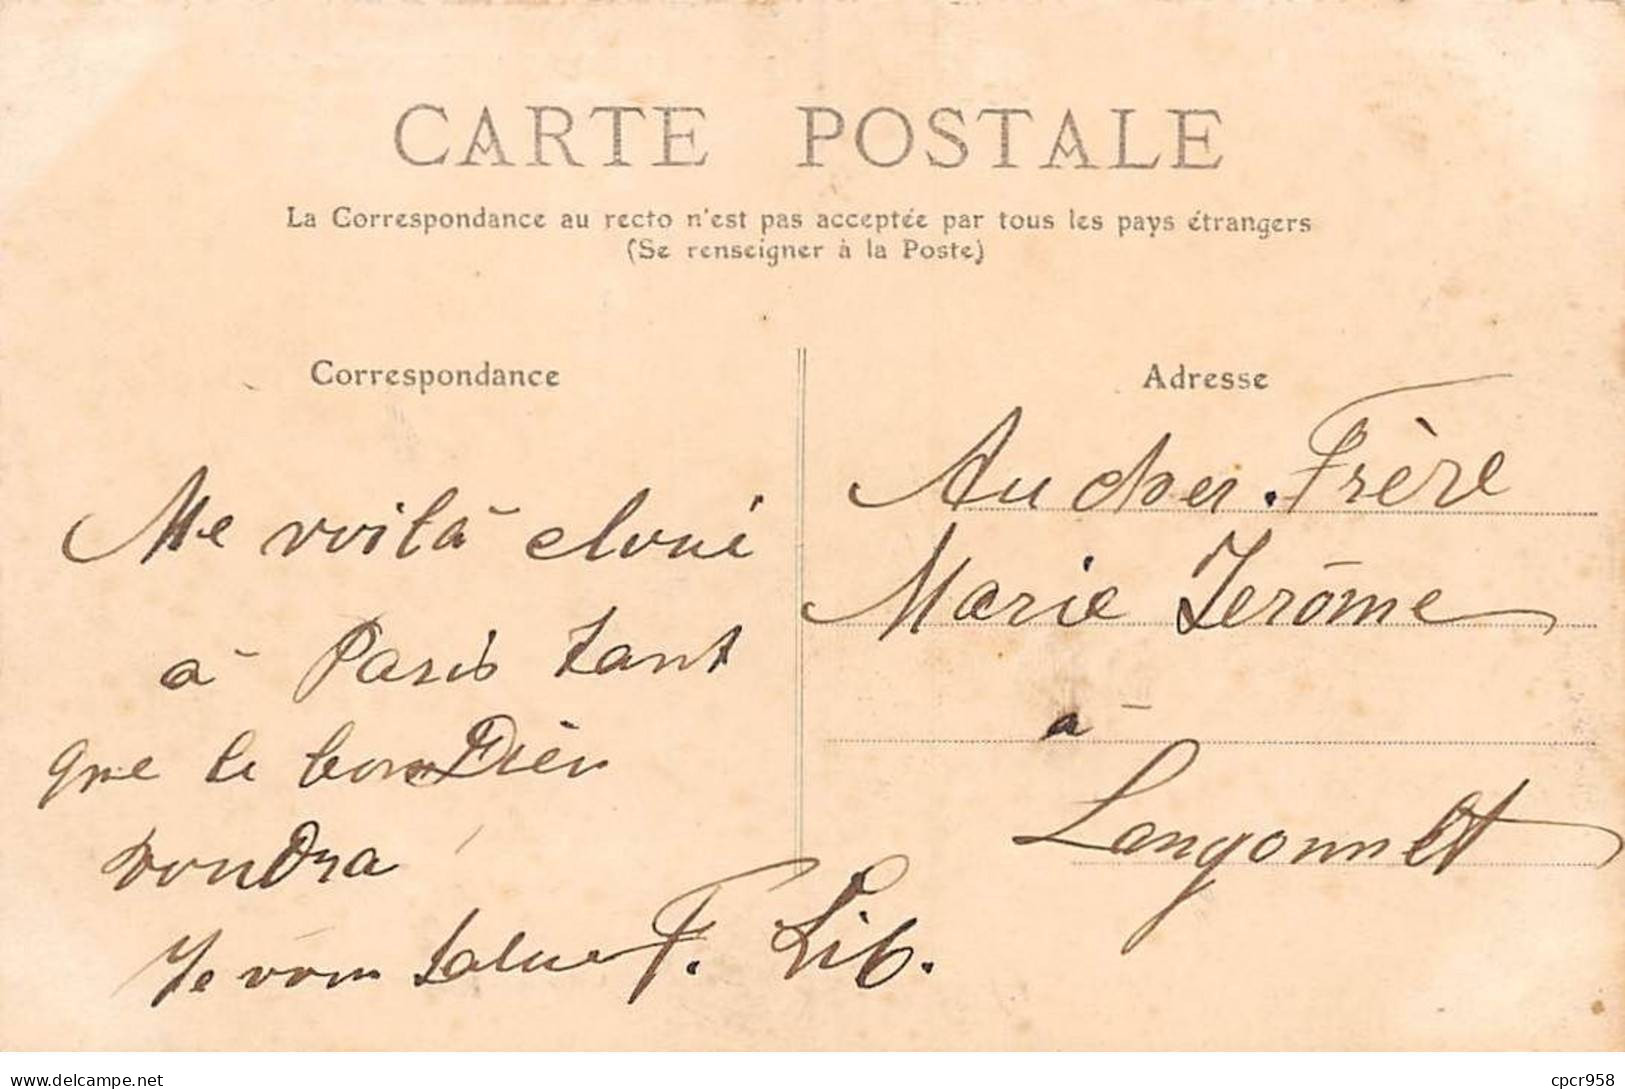 CARTE POSTALE
La Correspondance au recto n'est pas acceptée par tous les pays étrangers
(Se renseigner à la Poste)
Correspondance
Me voilà cloué
à Paris tant
que le bon Dieu
voudra
Je vous salue F. Lib.
Adresse
Au cher Frère
Marie Jérôme
à
Langonnet
www.delcampe.net
cpcr958